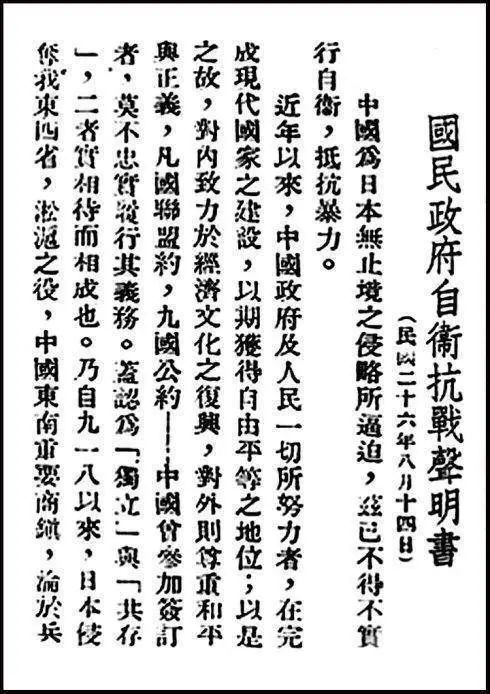 國民政府自衞抗戰聲明書
(民國二十六年八月十四日)
中國爲日本無止境之侵略所逼迫，茲已不得不實
行自衞，抵抗暴力。
近年以來，中國政府及人民一切所努力者，在完
成現代國家之建設，以期獲得自由平等之地位；以是
之故，對內致力於經濟文化之復興，對外則尊重和平
與正義，凡國聯盟約，九國公約——中國曾參加簽訂
者，莫不忠實履行其義務。蓋認爲「獨立」與「共存
」，二者實相待而相成也。乃自九一八以來，日本侵
奪我東四省，淞滬之役，中國東南重要商鎮，淪於兵